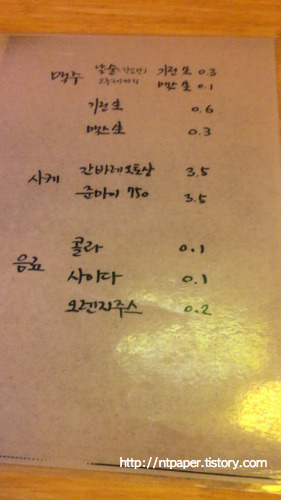 맥주 낮술 기린 生 0.3
맥스 生 0.1
기린 生 0.6
맥스 生 0.3
사케 간바레오토상 3.5
준마이 750 3.5
음료 콜라 0.1
사이다 0.1
오렌지주스 0.2
http://ntpaper.tistory.com